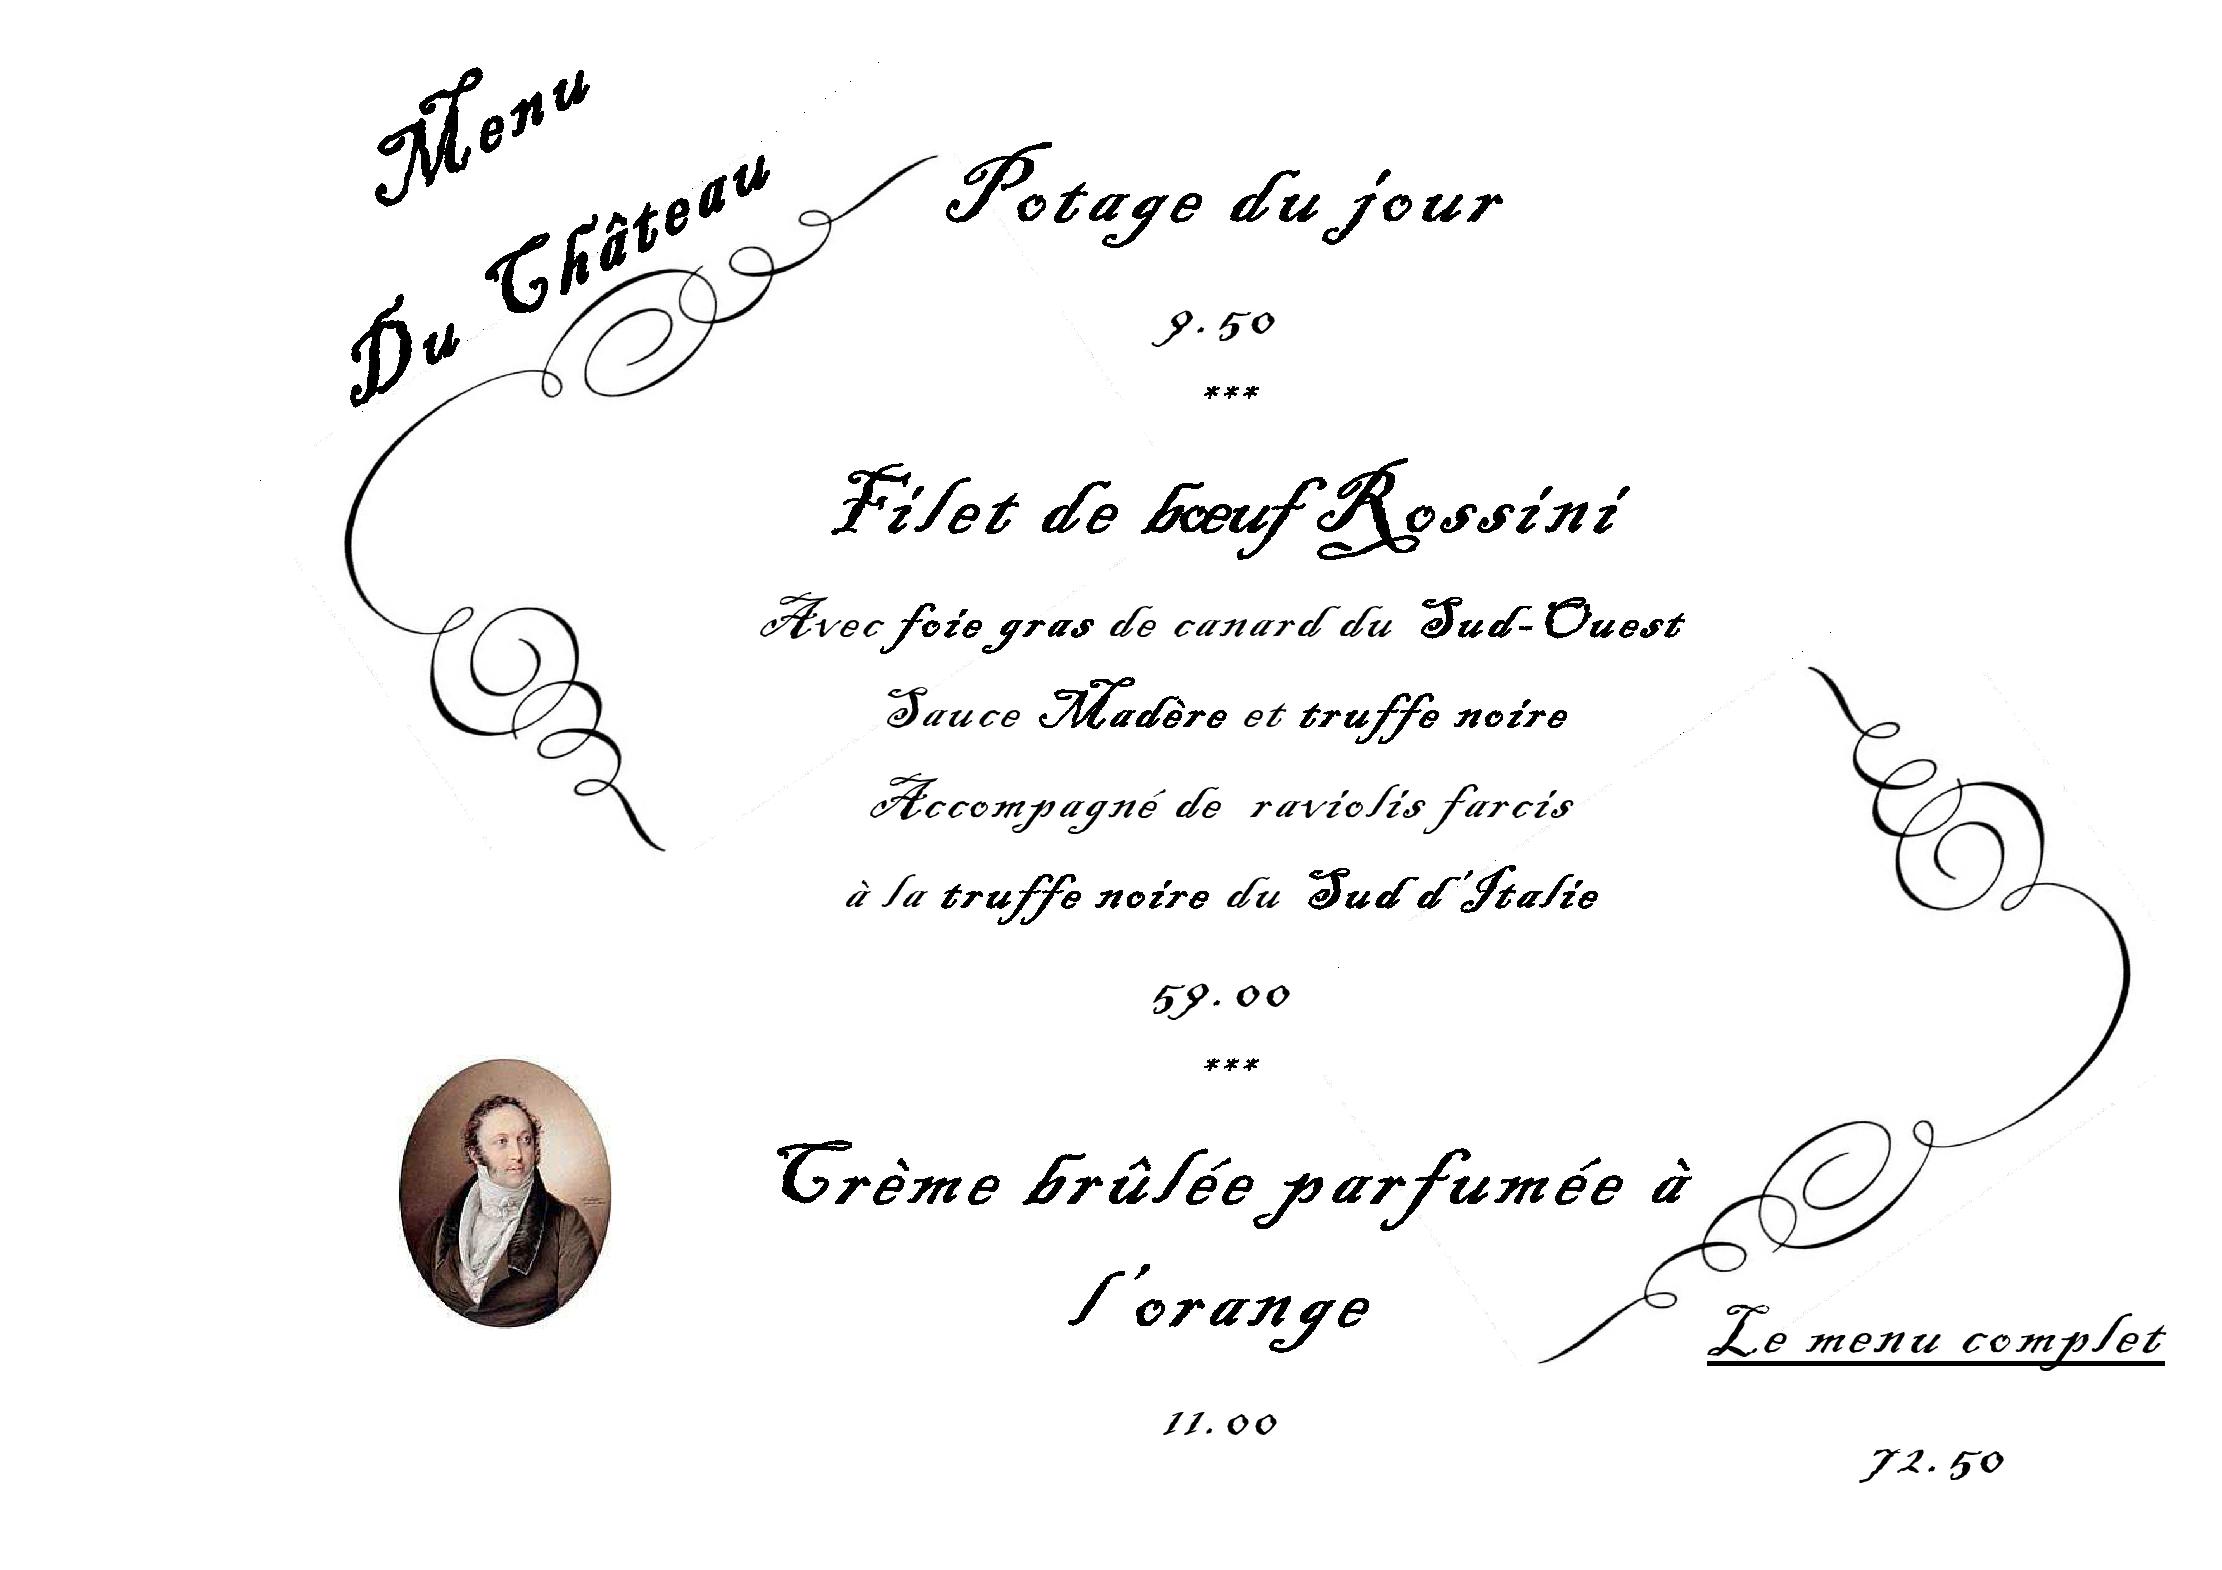 Menu
Du Château
Potage du jour
9.50
***
Filet de bœuf Rossini
Avec foie gras de canard du Sud-Ouest
Sauce Madère et truffe noire
Accompagné de raviolis farcis
à la truffe noire du Sud d'Italie
59.00
***
Crème brûlée parfumée à
l'orange
11.00
Le menu complet
72.50